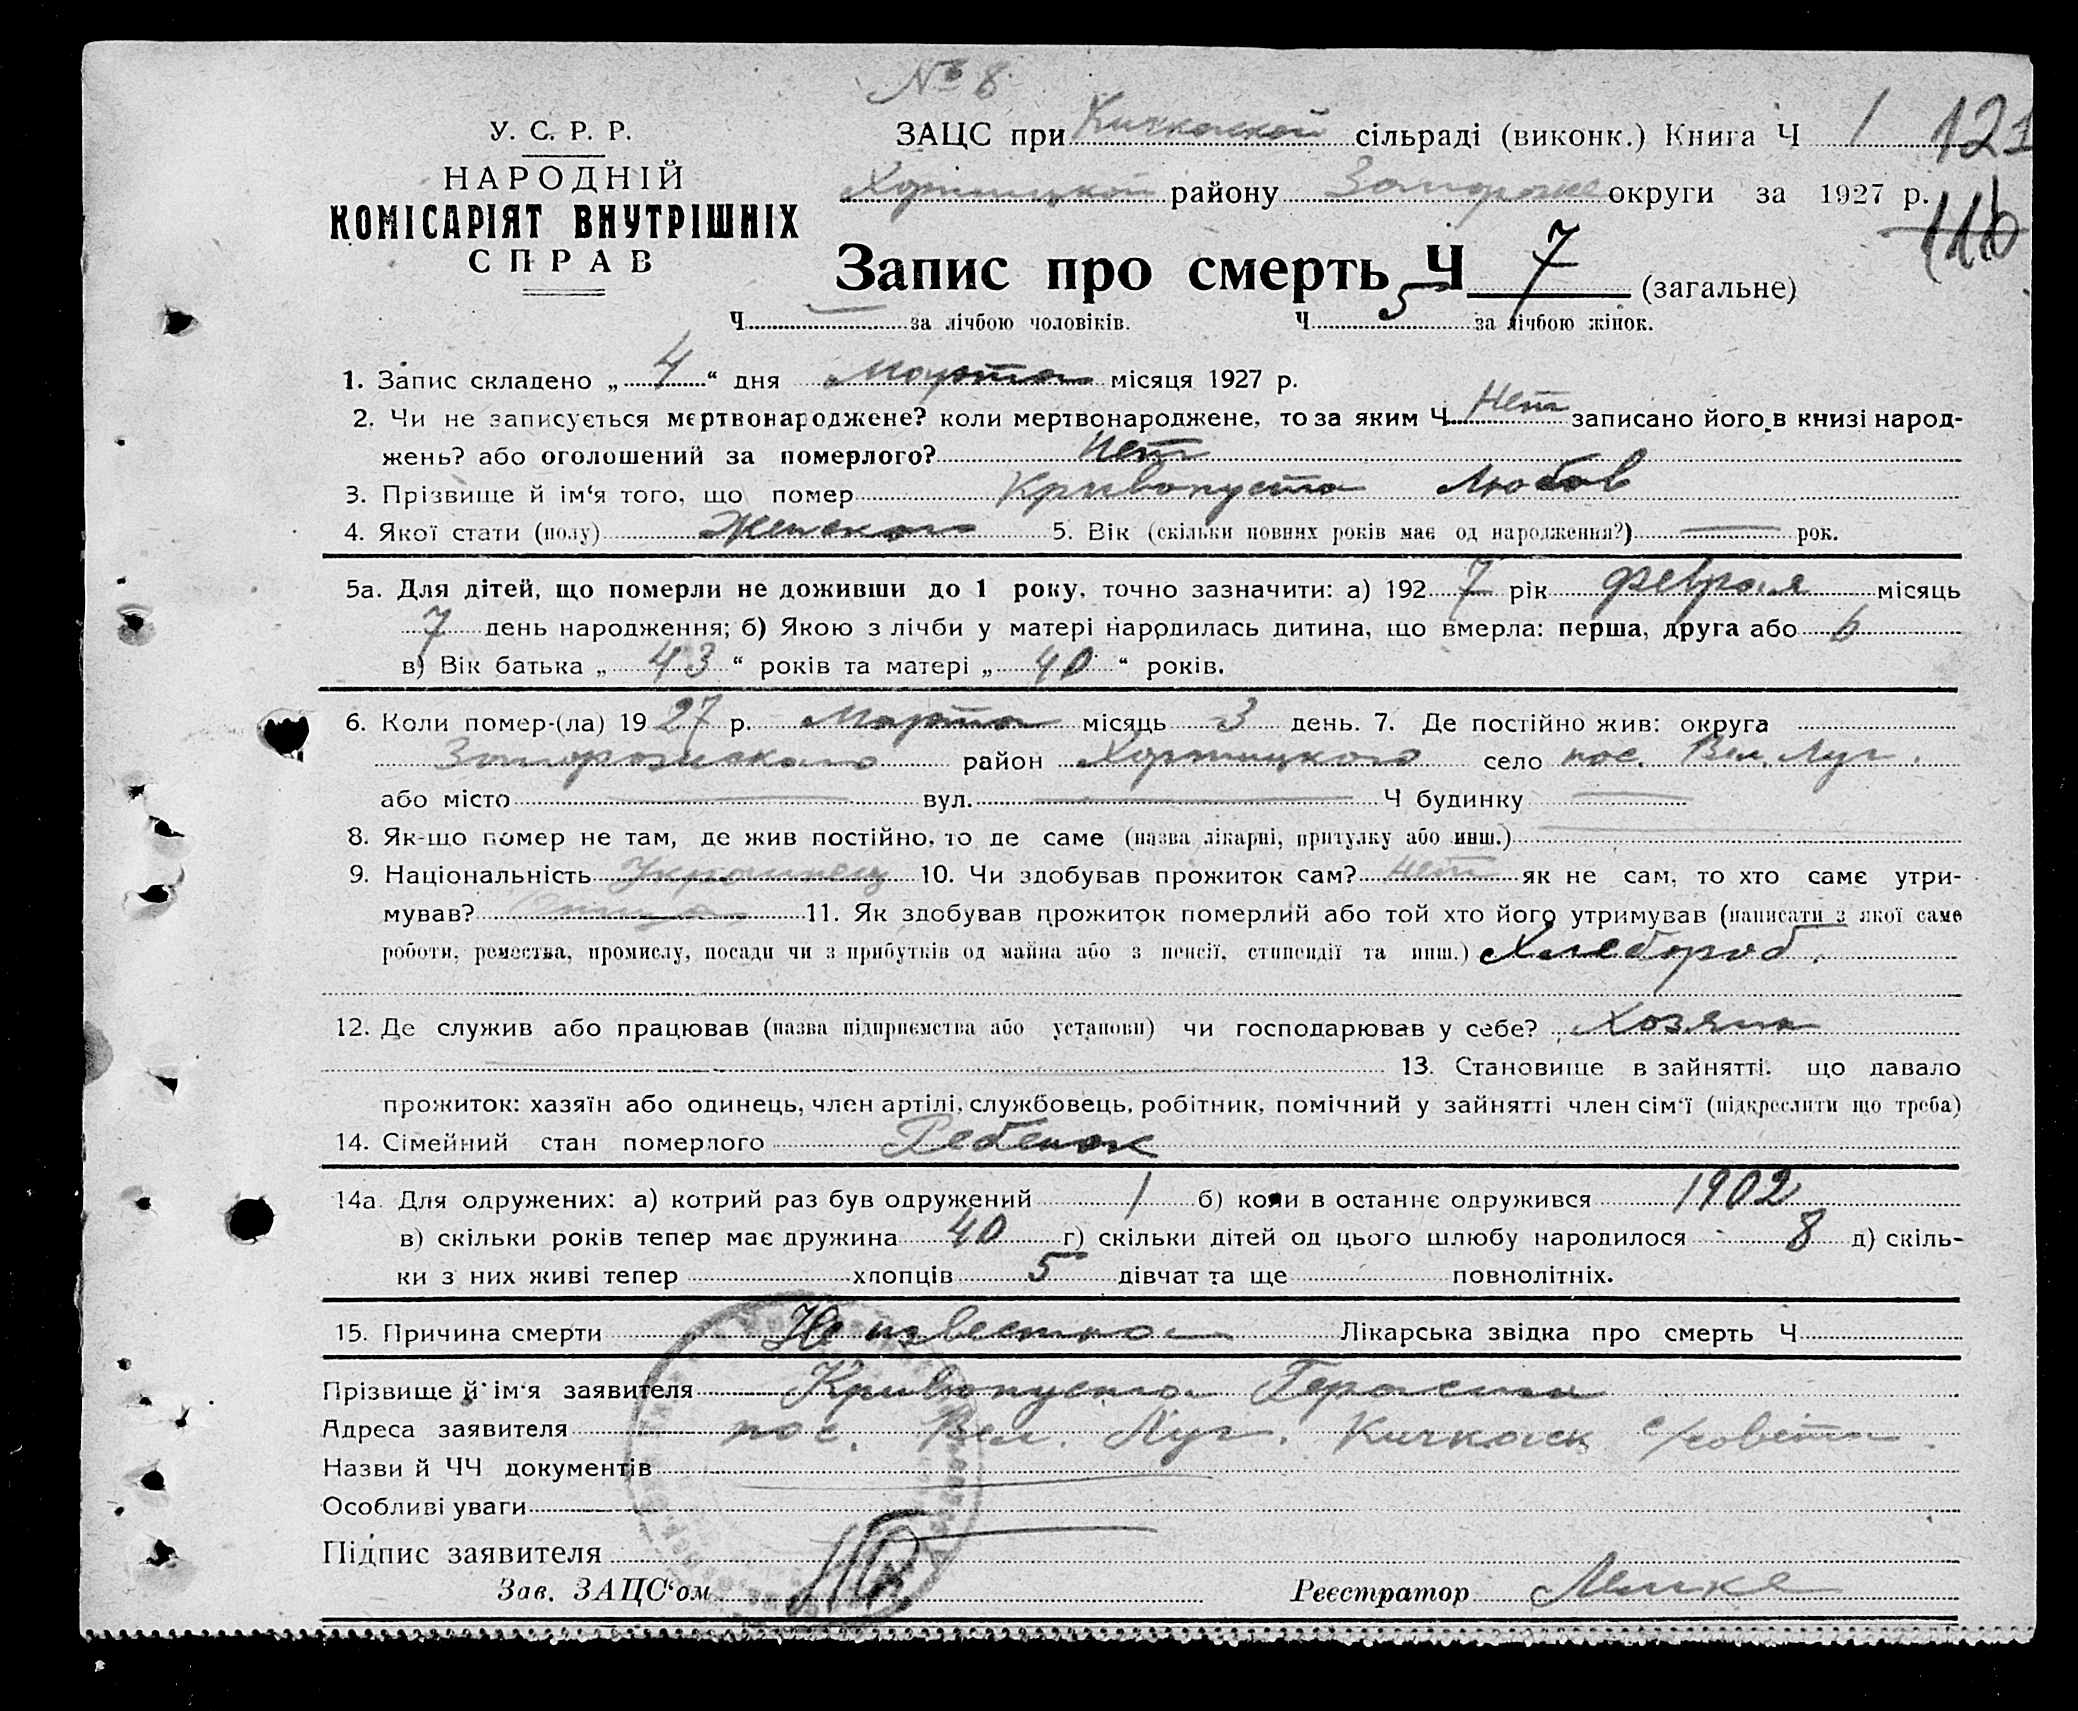 № 8
У. С. Р. Р.
НАРОДНІЙ
КОМІСАРІЯТ ВНУТРІШНІХ
СПРАВ
ЗАЦС при Кичкаской сільраді (виконк.) Книга Ч 1 121
Хортицкой району Запорож округи за 1927 р.
116
Запис про смерть Ч 7 (загальне)
Ч — за лічбою чоловіків. Ч 5 за лічбою жінок.
1. Запис складено „ 4 “ дня Марта місяця 1927 р.
2. Чи не записується мертвонароджене? коли мертвонароджене, то за яким Ч Нет записано його в книзі народ-
жень? або оголошений за померлого? Нет
3. Прізвище й ім‘я того, що помер Кривопуста Любов
4. Якої стати (полу) Женского 5. Вік (скільки повних років має од народження?) — рок.
5а. Для дітей, що померли не доживши до 1 року, точно зазначити: а) 192 7 рік февраля місяць
7 день народження; б) Якою з лічби у матері народилась дитина, що вмерла: перша, друга або 6
в) Вік батька „ 43 “ років та матері „ 40 “ років.
6. Коли помер-(ла) 19 27 р. Марта місяць 3 день. 7. Де постійно жив: округа
Запорожского район Хортицкого село пос. Вел. Луг.
або місто — вул. — Ч будинку —
8. Як-що помер не там, де жив постійно, то де саме (назва лікарні, притулку або инш.) —
9. Національність Украинец 10. Чи здобував прожиток сам? Нет як не сам, то хто саме утри-
мував? Отца 11. Як здобував прожиток померлий або той хто його утримував (написати з якої саме
роботи, ремества, промислу, посади чи з прибутків од майна або з пенсії, стипендії та инш.) Хлебороб.
12. Де служив або працював (назва підприємства або установи) чи господарював у себе? Хозяин
— 13. Становище в зайнятті, що давало
прожиток: хазяїн або одинець, член артілі, службовець, робітник, помічний у зайнятті член сім‘ї (підкреслити що треба)
14. Сімейний стан померлого Ребенок
14а. Для одружених: а) котрий раз був одружений 1 б) коли в останнє одружився 1902
в) скільки років тепер має дружина 40 г) скільки дітей од цього шлюбу народилося 8 д) скіль-
ки з них живі тепер хлопців 5 дівчат та ще повнолітніх.
15. Причина смерти Не известно Лікарська звідка про смерть Ч
Прізвище й ім‘я заявителя Кривопуста Герасим
Адреса заявителя пос. Вел. Луг. Кичкаск с/совета.
Назви й ЧЧ документів —
Особливі уваги
Підпис заявителя
Зав. ЗАЦС‘ом Реєстратор Лемке